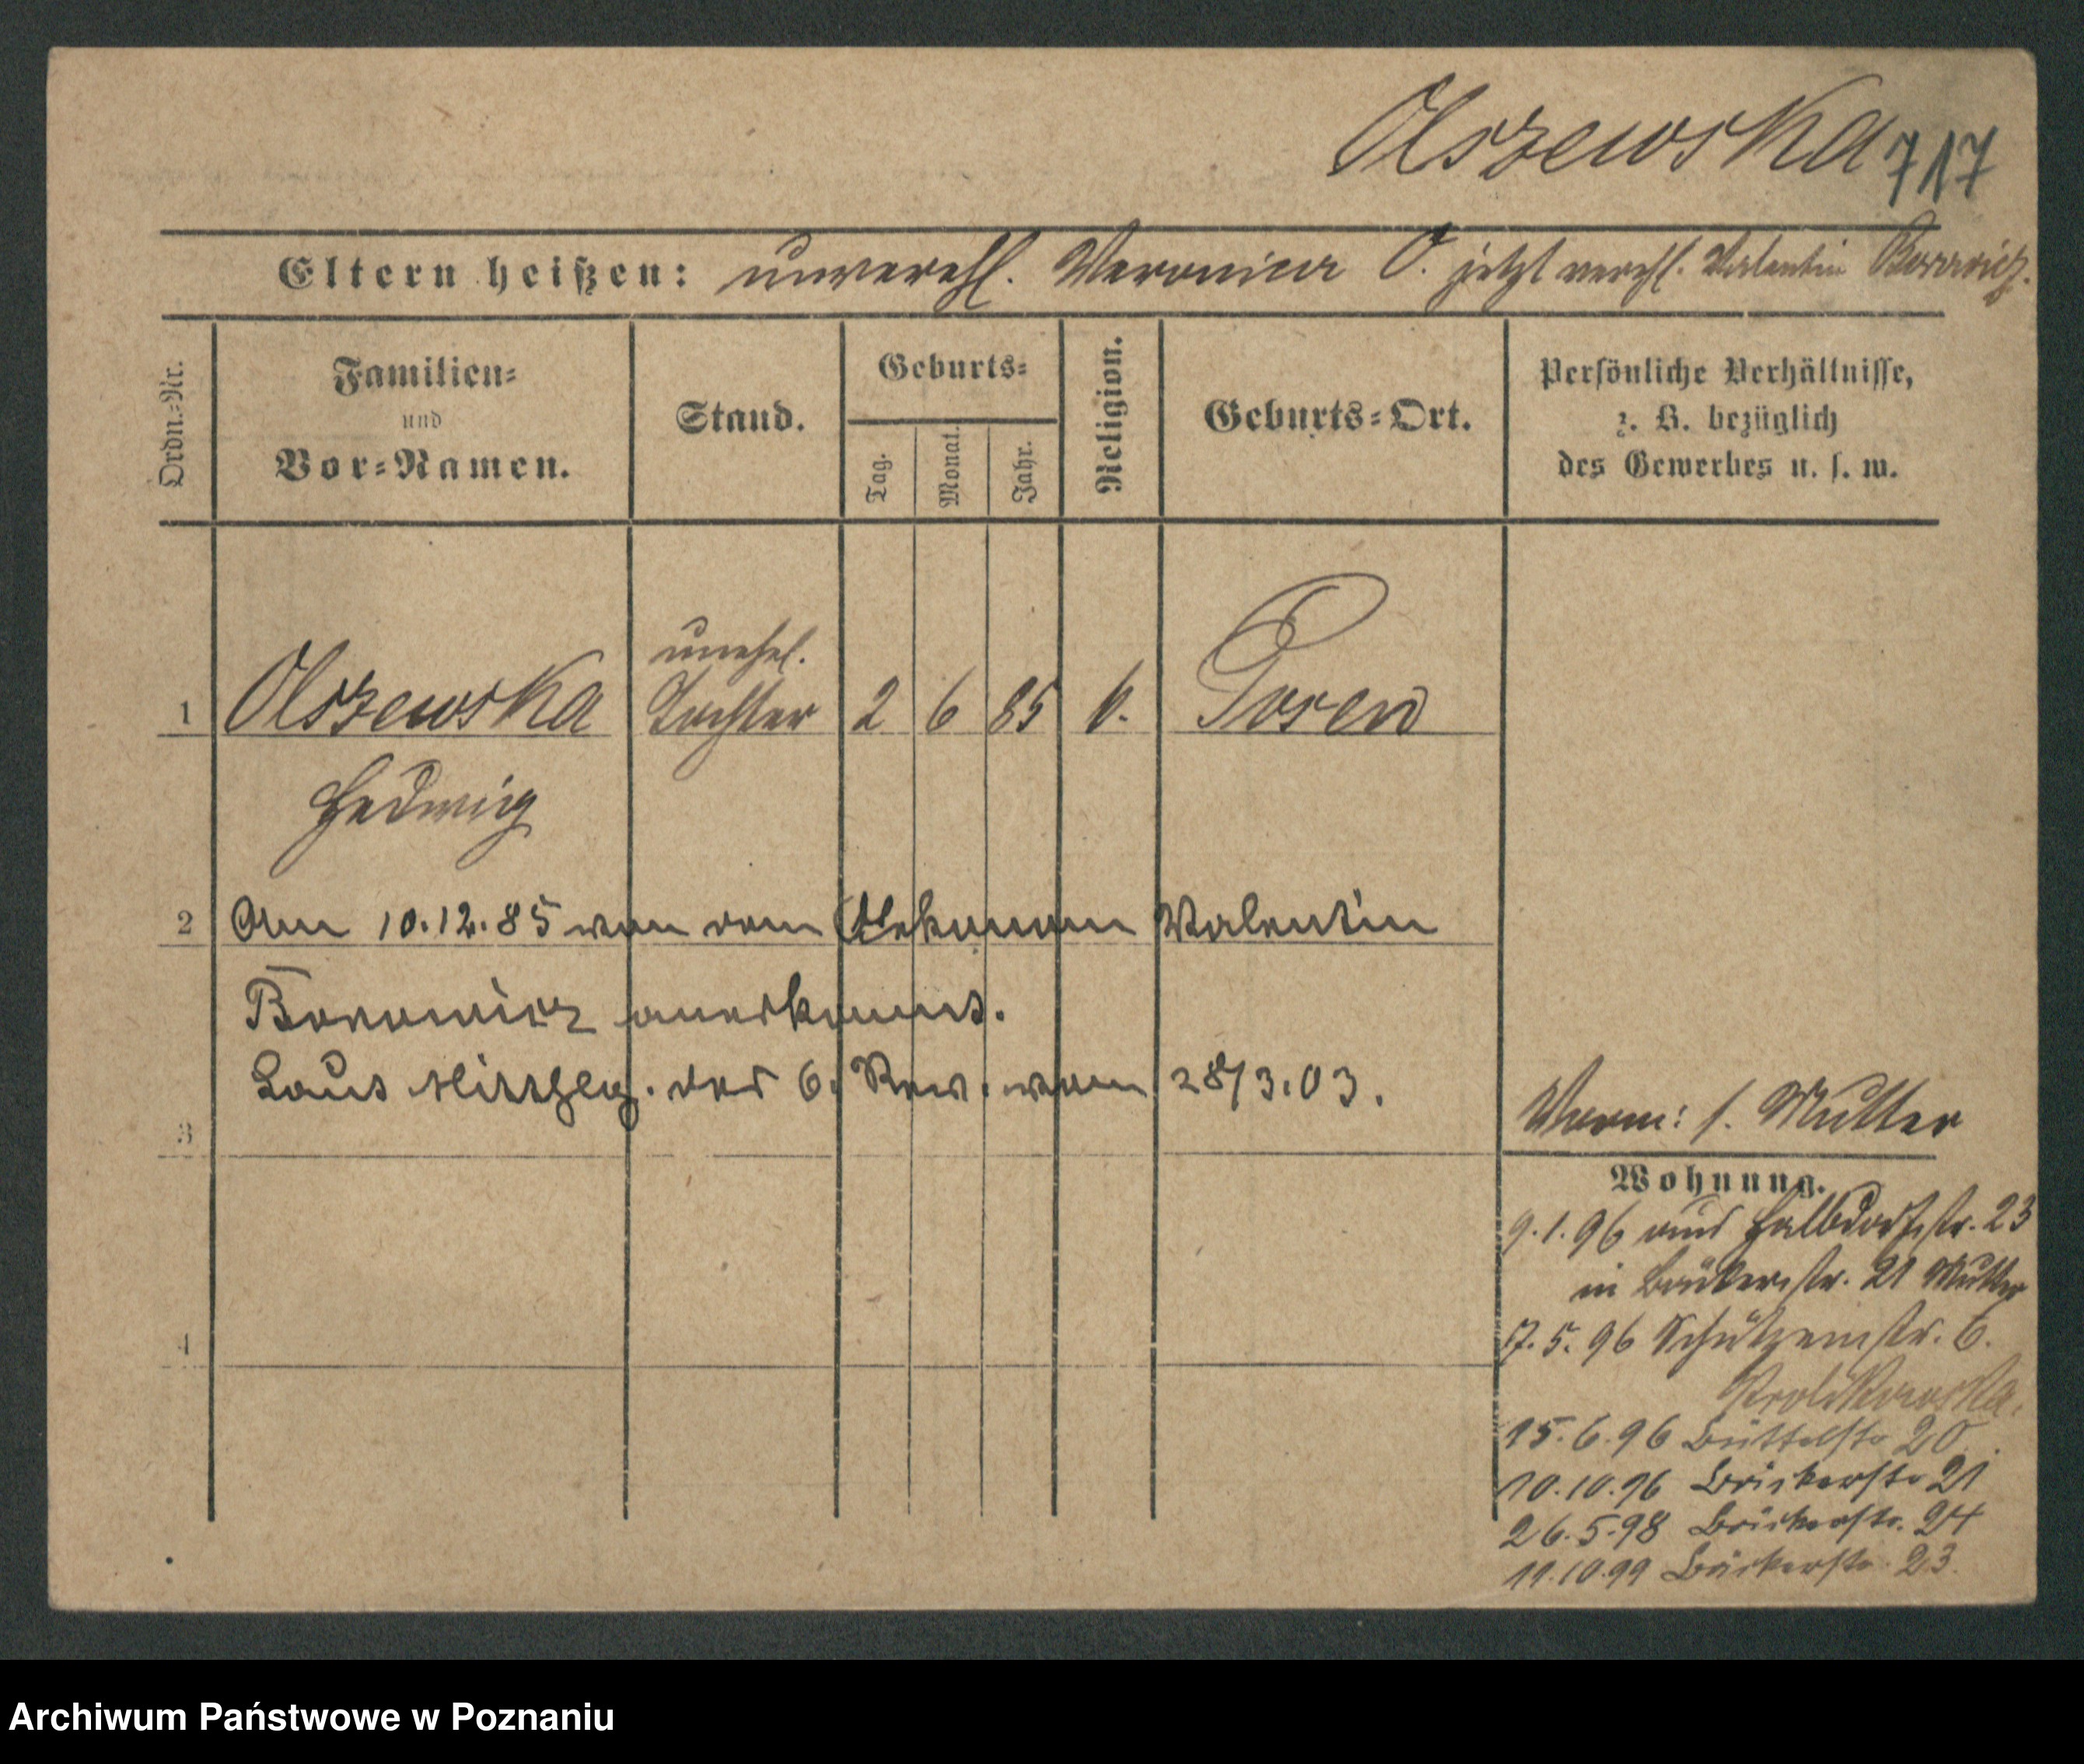 Olszewska 717
Eltern heißen: unverehl. Veronica O. jetzt verehl. Valentin Borowicz.
Ordn.-Nr.
Familien-
und
Vor-Namen.
Stand.
Geburts-
Tag.
Monat.
Jahr.
Religion.
Geburts-Ort.
Persönliche Verhältnisse,
z. B. bezüglich
des Gewerbes u. s. w.
unehel.
1 Olszewska Tochter 2 6 85 k. Posen
Hedwig
2 Am 10.12.85 von dem Valentin
Borowicz anerkannt.
Laut Mitthlg. des 6. Rev. vom 28/3.03.
3
Vorm: s. Mutter
Wohnung.
9.1.96 aus Halbdorfstr. 23
in Bäckerstr. 21 Mutter
7.5.96 Schützenstr. 6.
4
15.6.96 Büttelstr 20.
10.10.96 Bäckerstr 21
26.5.98 Bäckerstr. 24
11.10.99 Bäckerstr. 23.
Archiwum Państwowe w Poznaniu